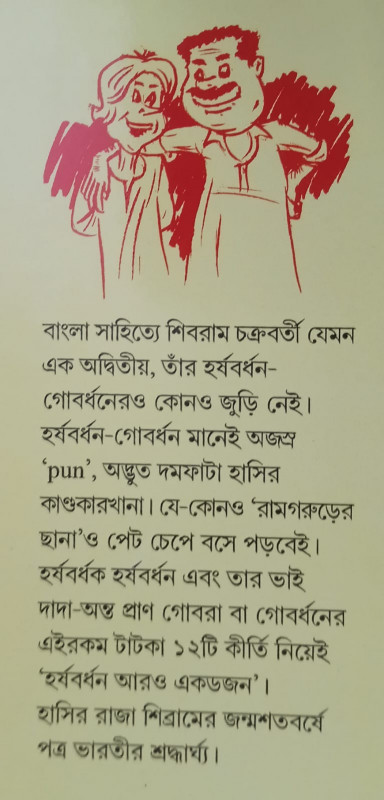 বাংলা সাহিত্যে শিবরাম চক্রবর্তী যেমন
এক অদ্বিতীয়, তাঁর হর্ষবর্ধন-
গোবর্ধনেরও কোনও জুড়ি নেই।
হর্ষবর্ধন-গোবর্ধন মানেই অজস্র
‘pun’, অদ্ভুত দমফাটা হাসির
কাণ্ডকারখানা। যে-কোনও ‘রামগরুড়ের
ছানা’ও পেট চেপে বসে পড়বেই।
হর্ষবর্ধক হর্ষবর্ধন এবং তার ভাই
দাদা-অন্ত প্রাণ গোবরা বা গোবর্ধনের
এইরকম টাটকা ১২টি কীর্তি নিয়েই
‘হর্ষবর্ধন আরও একডজন’।
হাসির রাজা শিব্রামের জন্মশতবর্ষে
পত্র ভারতীর শ্রদ্ধার্ঘ্য।